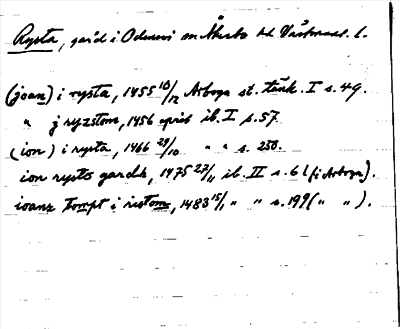 Rysta, gård i Odensvi sn Åkerbo hd Västmanl. l.
(joan) i rysta, 1455 10/12 Arboga st. tänk. I s. 49.
" j ryzstom, 1456 april ib. I s. 57.
(ion) i rysta, 1466 29/10 " " s. 250.
ion rysto gardh, 1475 27/11 ib. II s. 6 l (i Arboga).
ioans tompt i ristom, 1483 15/1 " " s. 199 ( " " ).